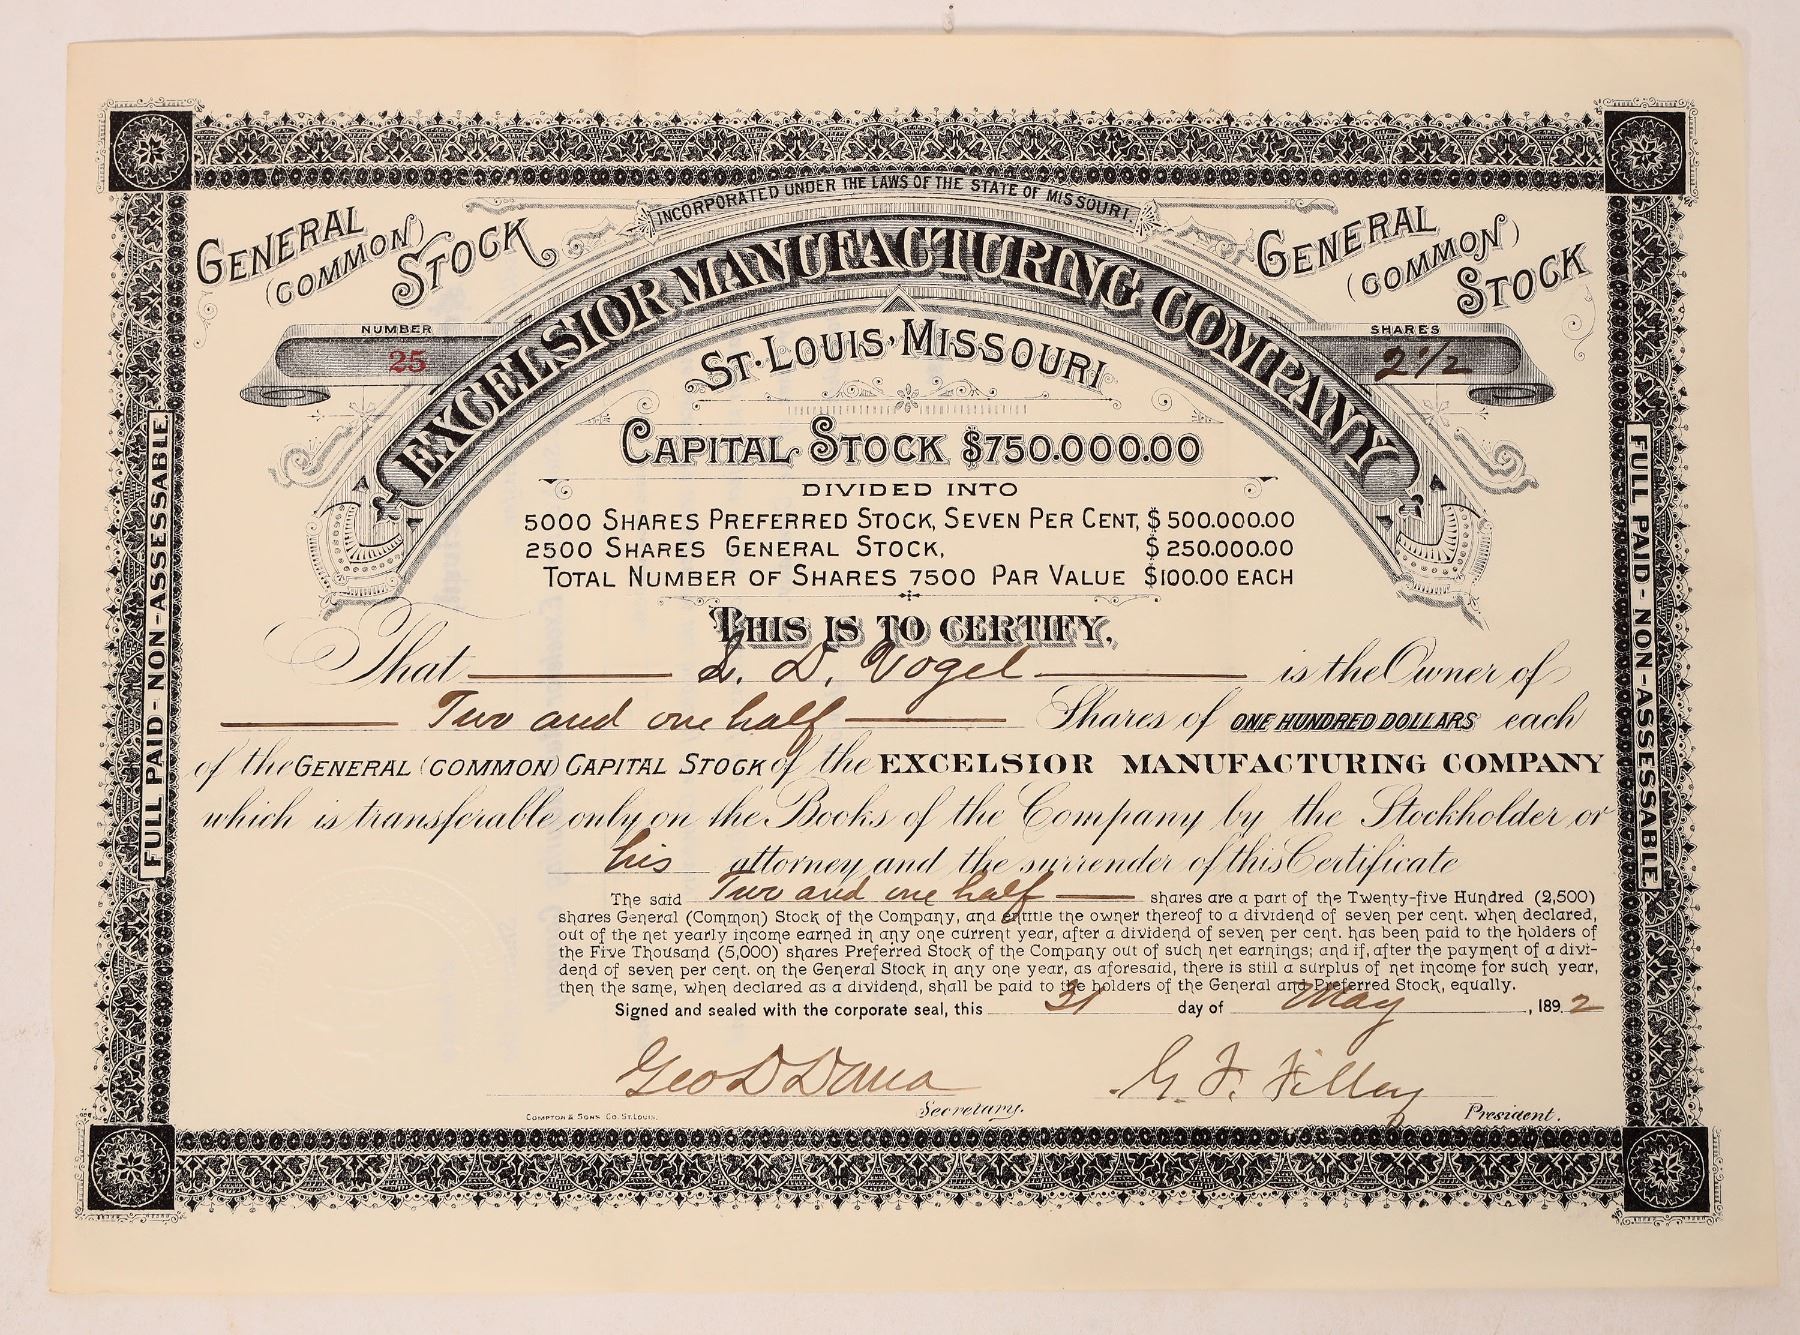 INCORPORATED UNDER THE LAWS OF THE STATE OF MISSOURI.
GENERAL (COMMON) STOCK
GENERAL (COMMON) STOCK
EXCELSIOR MANUFACTURING COMPANY
NUMBER
25
SHARES
2 1/2
ST. LOUIS, MISSOURI
CAPITAL STOCK $750.000.00
DIVIDED INTO
5000 SHARES PREFERRED STOCK, SEVEN PER CENT, $500.000.00
2500 SHARES GENERAL STOCK, $250.000.00
TOTAL NUMBER OF SHARES 7500 PAR VALUE $100.00 EACH
THIS IS TO CERTIFY,
That D. Vogel is the Owner of
Two and one half Shares of ONE HUNDRED DOLLARS each
of the GENERAL (COMMON) CAPITAL STOCK of the EXCELSIOR MANUFACTURING COMPANY
which is transferable only on the Books of the Company by the Stockholder or
his attorney and the surrender of this Certificate
The said Two and one half shares are a part of the Twenty-five Hundred (2,500)
shares General (Common) Stock of the Company, and entitle the owner thereof to a dividend of seven per cent. when declared,
out of the net yearly income earned in any one current year, after a dividend of seven per cent. has been paid to the holders of
the Five Thousand (5,000) shares Preferred Stock of the Company out of such net earnings; and if, after the payment of a divi-
dend of seven per cent. on the General Stock in any one year, as aforesaid, there is still a surplus of net income for such year,
then the same, when declared as a dividend, shall be paid to the holders of the General and Preferred Stock, equally.
Signed and sealed with the corporate seal, this 31 day of May, 1892
Geo D Dana
Secretary.
G. F. Filley
President.
COMPTON & SONS CO. ST. LOUIS.
FULL PAID - NON-ASSESSABLE.
FULL PAID - NON-ASSESSABLE.